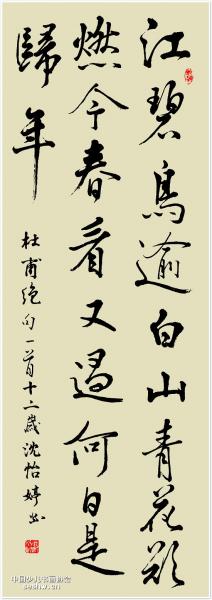 江碧鳥逾白山青花欲
燃今春看又過何日是
歸年
杜甫絕句一首十二歲沈怡婷書
中国少儿书画协会
seshw.cn